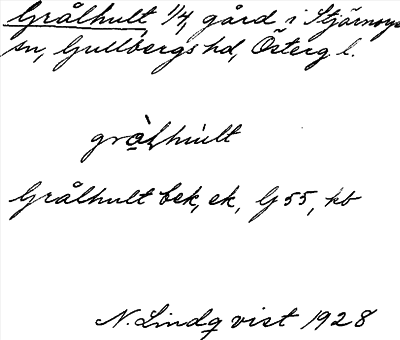 Grålhult 1/4, gård i Stjärnorps
sn, Gullbergs hd, Österg l.
grålhult
Grålhult bek, ek, G 55, kb
N. Lindqvist 1928